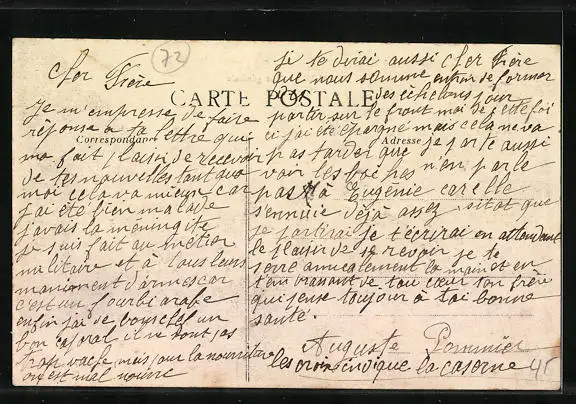 72
Cher Frère
CARTE POSTALE
Correspondance
Adresse
Je m'empresse de faire
réponse à ta lettre qui
ma fait plaisir de recevoir
de tes nouvelles tant qua
moi cela va mieux car
j'ai été bien malade
j'avais la meningite
je suis fait au métier
militaire et à tous leurs
maniment d'armes car
c'est un fourbi arabe
enfin jai de bons chefs un
bon caporal il ne sont pas
trop vache mais pour la nourriture
on est mal nourri
je te dirai aussi cher Frère
que nous somme entrin de former
des échelons pour
partir sur le front moi de cette foi
ci j'ai été épargné mais cela ne va
pas tarder que je parte aussi
voir les boches n'en parle
pas à Eugénie car elle
s'ennuie déjà assez sitot que
je partirai je t'écrirai en attendant
le plaisir de se revoir je te
serre amicalement la main et en
t'embrassant de tou cœur ton frère
qui pense toujour à toi bonne
santé.
Auguste Pommier
les croix indique la caserne
45